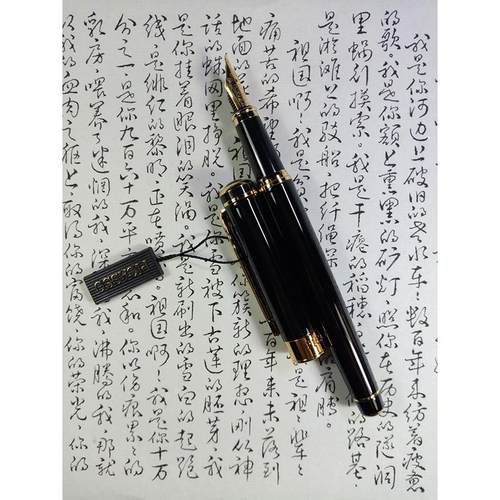 我是你河边上破旧的老水车，数百年来纺着疲惫
的歌。我是你额上熏黑的矿灯，照你在历史的隧洞
里蜗行摸索。我是干瘪的稻穗，的路基
是淤滩上的驳船，把纤绳深
祖国啊！我是是祖祖辈辈
痛苦的希望百年来未落到
地面的你簇新的理想，刚从神
话的蛛网里挣脱。我是你雪被下古莲的胚芽，我
是你挂着眼泪的笑涡。我是新刷出的雪白的起跑
线，是绯红的黎明，正在喷薄。祖国啊！我是你十万
分之一，是你九百六十万平总和。你以伤痕累累的
乳房，喂养了迷惘的我，深沸腾的我，那就
的血肉之躯上，取得你的富饶，你的荣光，你的
PICASSO